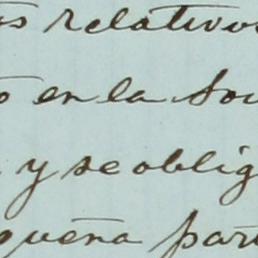 os relativos
o en la Sou
y se oblig
queña part